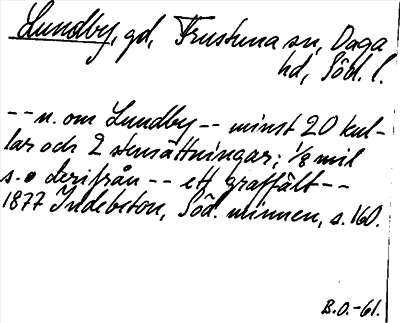 Lundby, gd, Frustuna sn, Daga
hd, Söd. l.
-- n. om Lundby -- minst 20 kul-
lar och 2 stensättningar; 1/8 mil
s.o derifrån -- ett graffält --
1877 Indebeton, Söd. minnen, s. 160.
B.O.-61.